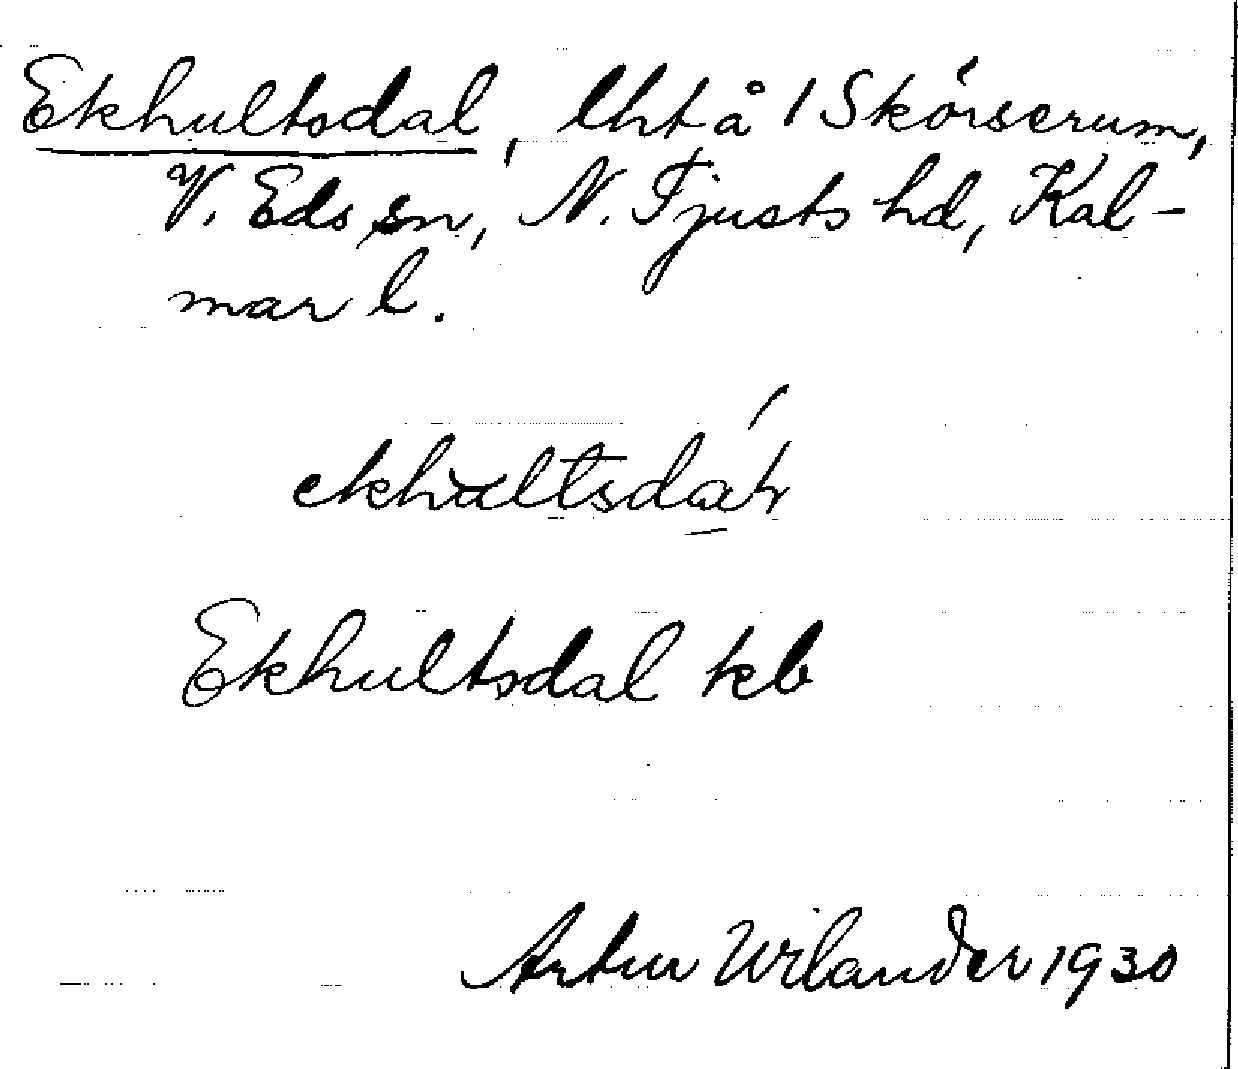 Ekhultsdal, lht å 1 Skörserum,
V. Eds sn, N. Tjusts hd, Kal-
mar l.
Ekhultsdal kb
Artur Wilander 1930